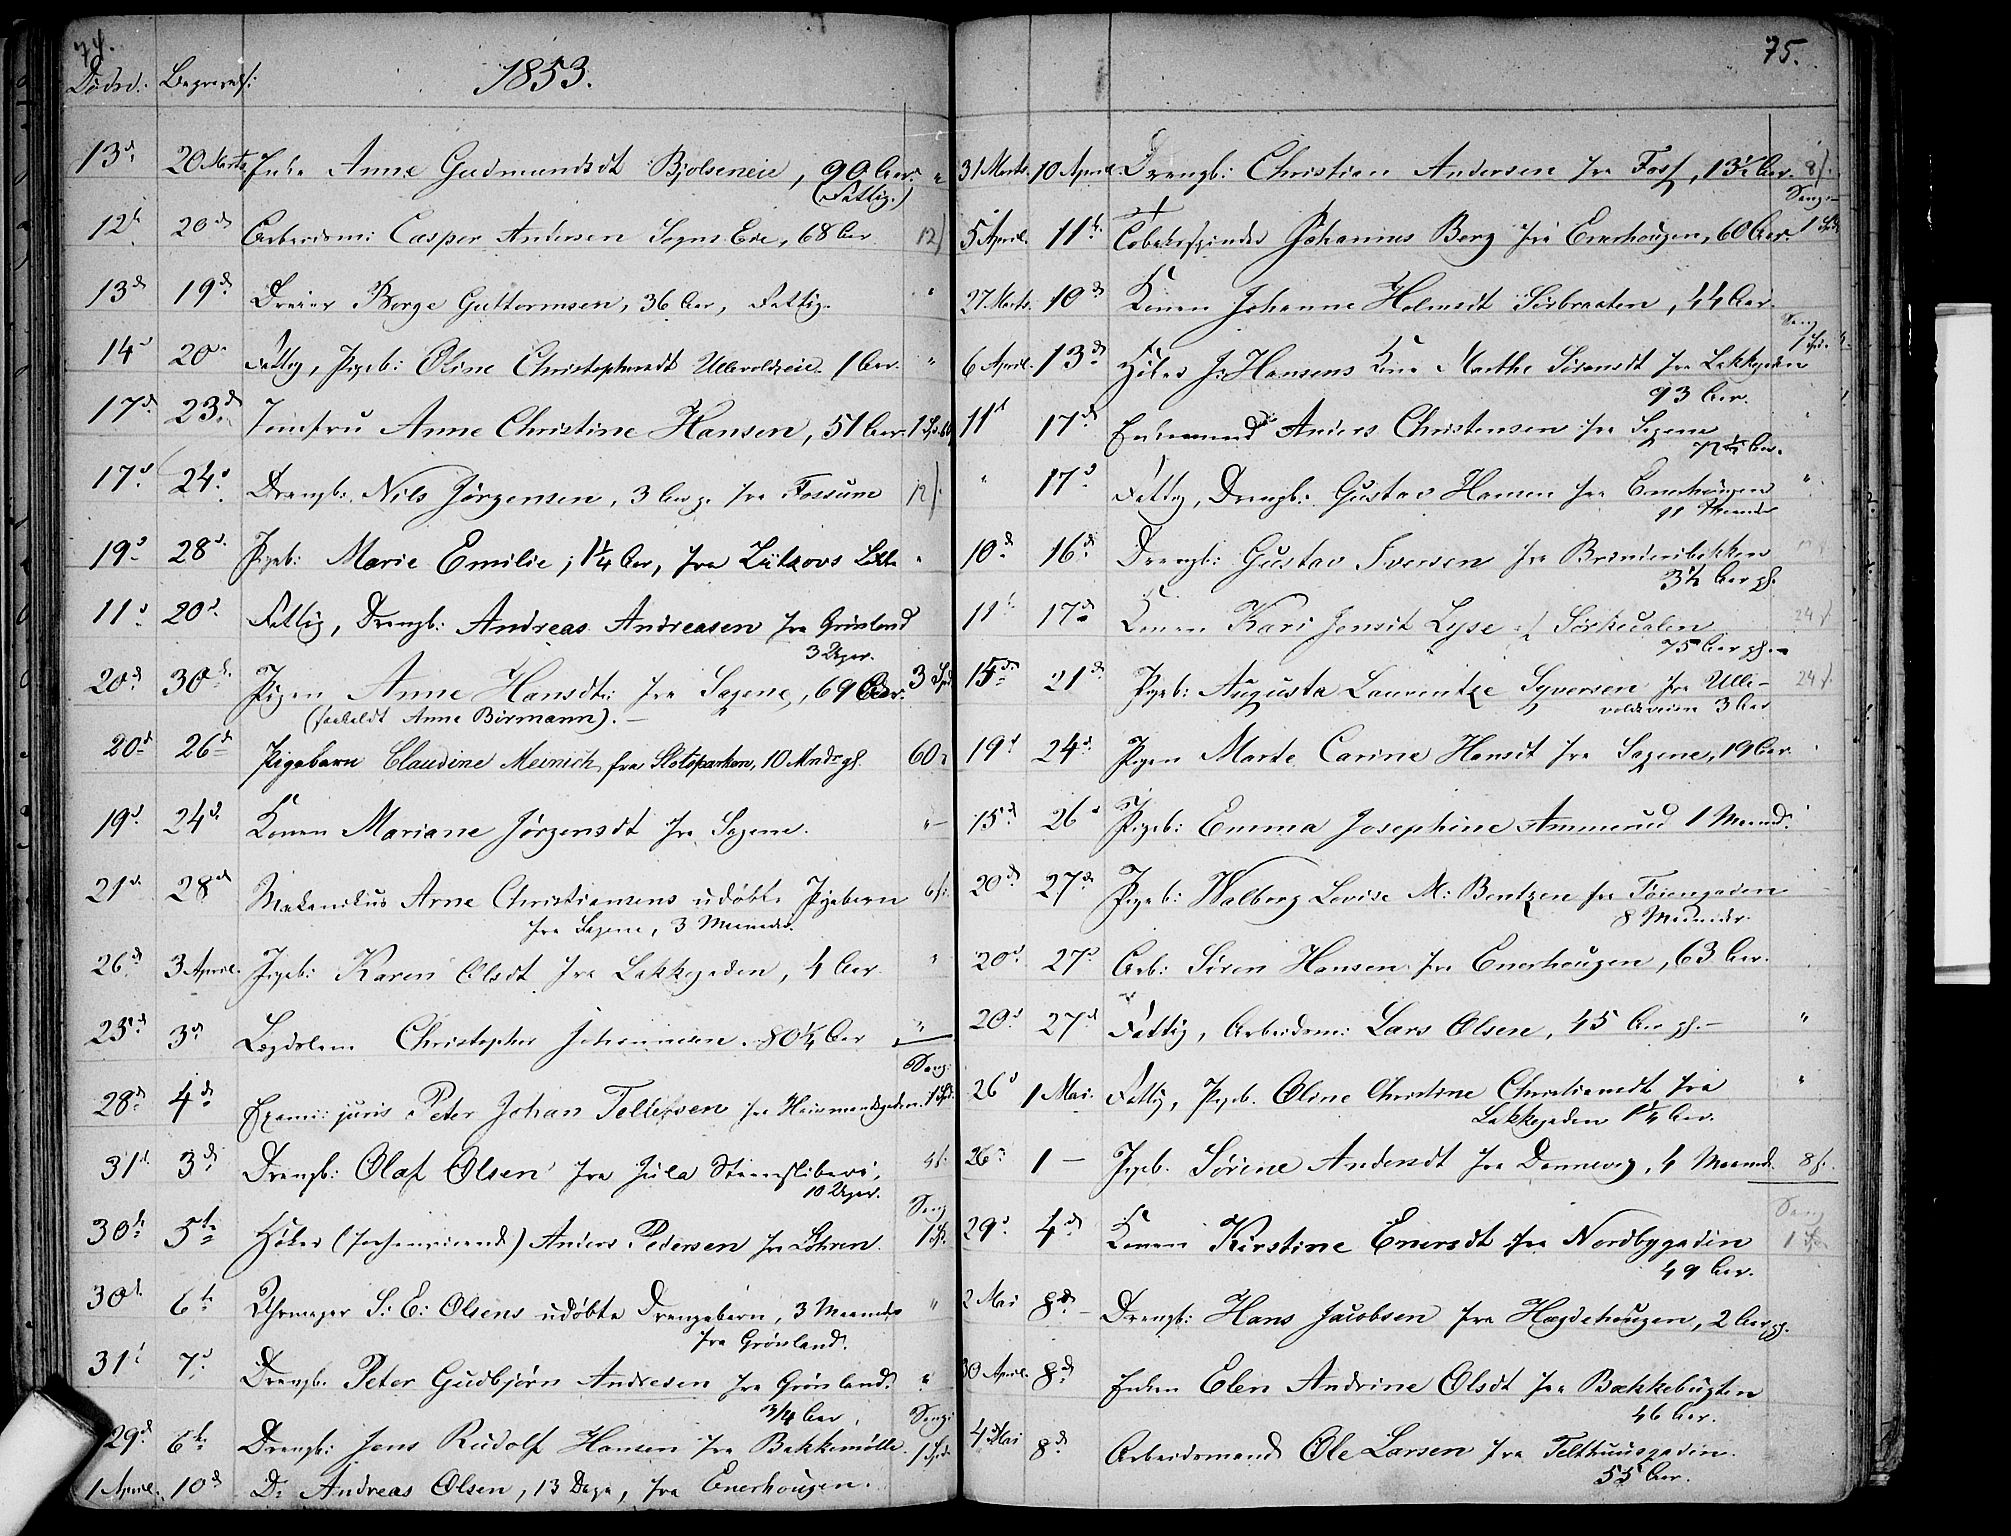 74.
Dødsd. Begravds:
1853.
13d 20 Marts. Enke Anne Gudmundsdt Bjølseneie, 90 Aar. "
(Fattig.)
12t 20d Arbeidsm: Casper Andersen Sogns Eie, 68 Aar 12ʃ
13d 19d Dreier Børge Guttormsen, 36 Aar, Fattig. "
14d 20d Fattig, Pigeb: Oline Christophersdt Ullevoldseie 1 Aar. "
17d 23d Jomfru Anne Christine Hansen, 51 Aar. 1
17d 24d Drengb: Nils Jørgensen, 3 Aar g. fra Fossum 12ʃ
19d 28d Pigeb: Marie Emilie, 1¼ Aar, fra Lützovs Løkke "
11d 20d Fattig, Drengb: Andreas Andreasen fra Grønland
3 Uger.
20d 30d Pigen Anne Hansdt: fra Sagene, 69 Aar. 3 Spd
(kaldt Anne Birmann).
20d 26d Pigebarn Claudine Meinich, fra Slotsparken, 10 Mndr gl. 60
19d 24d Konen Mariane Jørgensdt fra Sagene. "
21d 28d Mekanikus Arne Christiansens udøbte Pigebarn 6ʃ
fra Sagene, 3 Maaneder.
26d 3 April. Pigeb: Karen Olsdt fra Lakkegaden, 4 Aar "
25d 3d Lægdslem Christopher Johannesen. 80¼ Aar "
Sang
28d 4d Exami: juris Peter Johan Tellefsen fra Huusmandsgaden. 1 Spd
31d 3d Drengb: Olaf Olsen fra Jula Steensliberi, 4ʃ
10 Uger.
Sang
30t 5te Høker (forhenværende) Anders Pedersen fra Løkren. 1 Sp.
30d 6te Uhrmager S: E: Olsens udøbte Drengebarn, 3 Maaneder "
fra Grønland.
31d 7d Drengb. Peter Gudbjørn Andresen fra Grønland. "
3/4 Aar.
Sang:
29d 6te Drengb: Jens Rudolf Hansen fra Bakkemølle. 1 Spd
1 April. 10d Do Andreas Olsen, 13 Dage, fra Enerhougen.
75.
31 Marts. 10 April. Drengb: Christian Andersen fra Foss, 13½ Aar. 8ʃ.
Sang
5 April. 11t Tobaksspinder Johannes Berg fra Enerhougen, 60 Aar. 1 Spd
27. Marts. 10d Konen Johanne Holmsdt Sørbraaten, 44 Aar.
Sang
6 April. 13d Høker J: Hansens Kone Marthe Sørensdt fra Lakkegaden 1 Spd.
93 Aar.
11d 17d Enkemand Anders Christensen fra Sagene "
Aar.
" 17d Fattig, Drengb: Gustav Hansen fra Enerhougen "
11 Maaneder
10d 16d Drengb: Gustav Iversen fra Brinderibakken
3½ Aar gl.
11t 17d Konen Kari Jensdt Lyse i Sørkedalen 24ʃ
75 Aar gl.
15de 21d Pigeb: Augusta Laurentze Syversen fra Ulle- 24ʃ.
voldsveien 3 Aar
19d 24d Pigen Marte Carine Hansdt fra Sagene, 19 Aar.
15d 26d Pigeb: Emma Josephine Ammerud 1 Maaned.
20d 27d Pigeb: Walborg Lovise M: Bentzen fra Tøiengaden
8 Maaneder.
20d 27d Arb: Søren Hansen fra Enerhougen, 63 Aar.
20d 27d Fattig, Arbeidsm: Lars Olsen, 45 Aar gl. "
26d 1 Mai. Fattig, Pigeb. Oline Christine Christiansdt fra "
Lakkegaden 1¼ Aar.
26d 1 — Pigeb. Sørine Andersdt fra Dannevig, 4 Maaned. 8ʃ.
Sang
29d 4d Konen Kirstine Enersdt fra Nordbygaden 1 Spd
49 Aar.
2 Mai 8d Drengb: Hans Jacobsen fra Hægdehougen, 2 Aar gl.
30 April. 8d Enken Elen Andrine Olsdt fra Bækkebugten
46 Aar.
4 Mai 8d Arbeidsmand Ole Larsen fra Telthuusgaden
55 Aar.